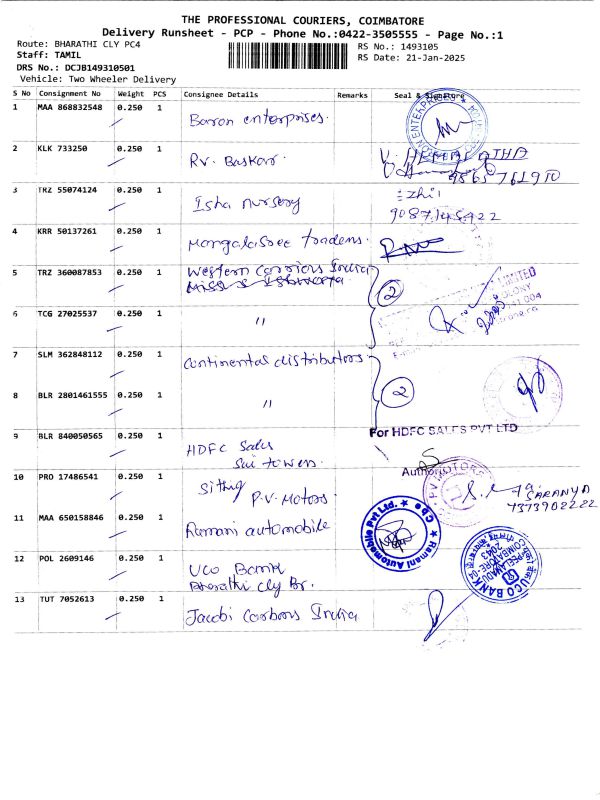 THE PROFESSIONAL COURIERS, COIMBATORE
Delivery Runsheet - PCP - Phone No.:0422-3505555 - Page No.:1
Route: BHARATHI CLY PC4
RS No.: 1493105
Staff: TAMIL
RS Date: 21-Jan-2025
DRS No.: DCJB149310501
Vehicle: Two Wheeler Delivery
S No Consignment No Weight PCS Consignee Details Remarks Seal & Signature
1 MAA 868832548 0.250 1 Baron enterprises.
2 KLK 733250 0.250 1 RV. Baskar.
V. HEMALATHA
9865761910
3 TRZ 55074124 0.250 1 Isha nursery
Ezhil
9087148422
4 KRR 50137261 0.250 1 Mangalasree traders.
5 TRZ 360087853 0.250 1 Western Carriors India
2
LIMITED
6 TCG 27025537 0.250 1 "
7 SLM 362848112 0.250 1 Continental distributors
2
8 BLR 2801461555 0.250 1 "
For HDFC SALES PVT LTD
9 BLR 840050565 0.250 1 HDFC Sales
Sai towers.
10 PRO 17486541 0.250 1
P.V. Motors.
P.V. MOTORS
SARANYA
7373902222
11 MAA 650158846 0.250 1 Ramani automobile
Ramani Automobile Pvt Ltd. Cbe
12 POL 2609146 0.250 1 UCO Bank
Bharathi cly Br.
UCO BANK
PEELAMEDU
2043
COIMBATORE
13 TUT 7052613 0.250 1 Jacobi Carbons India